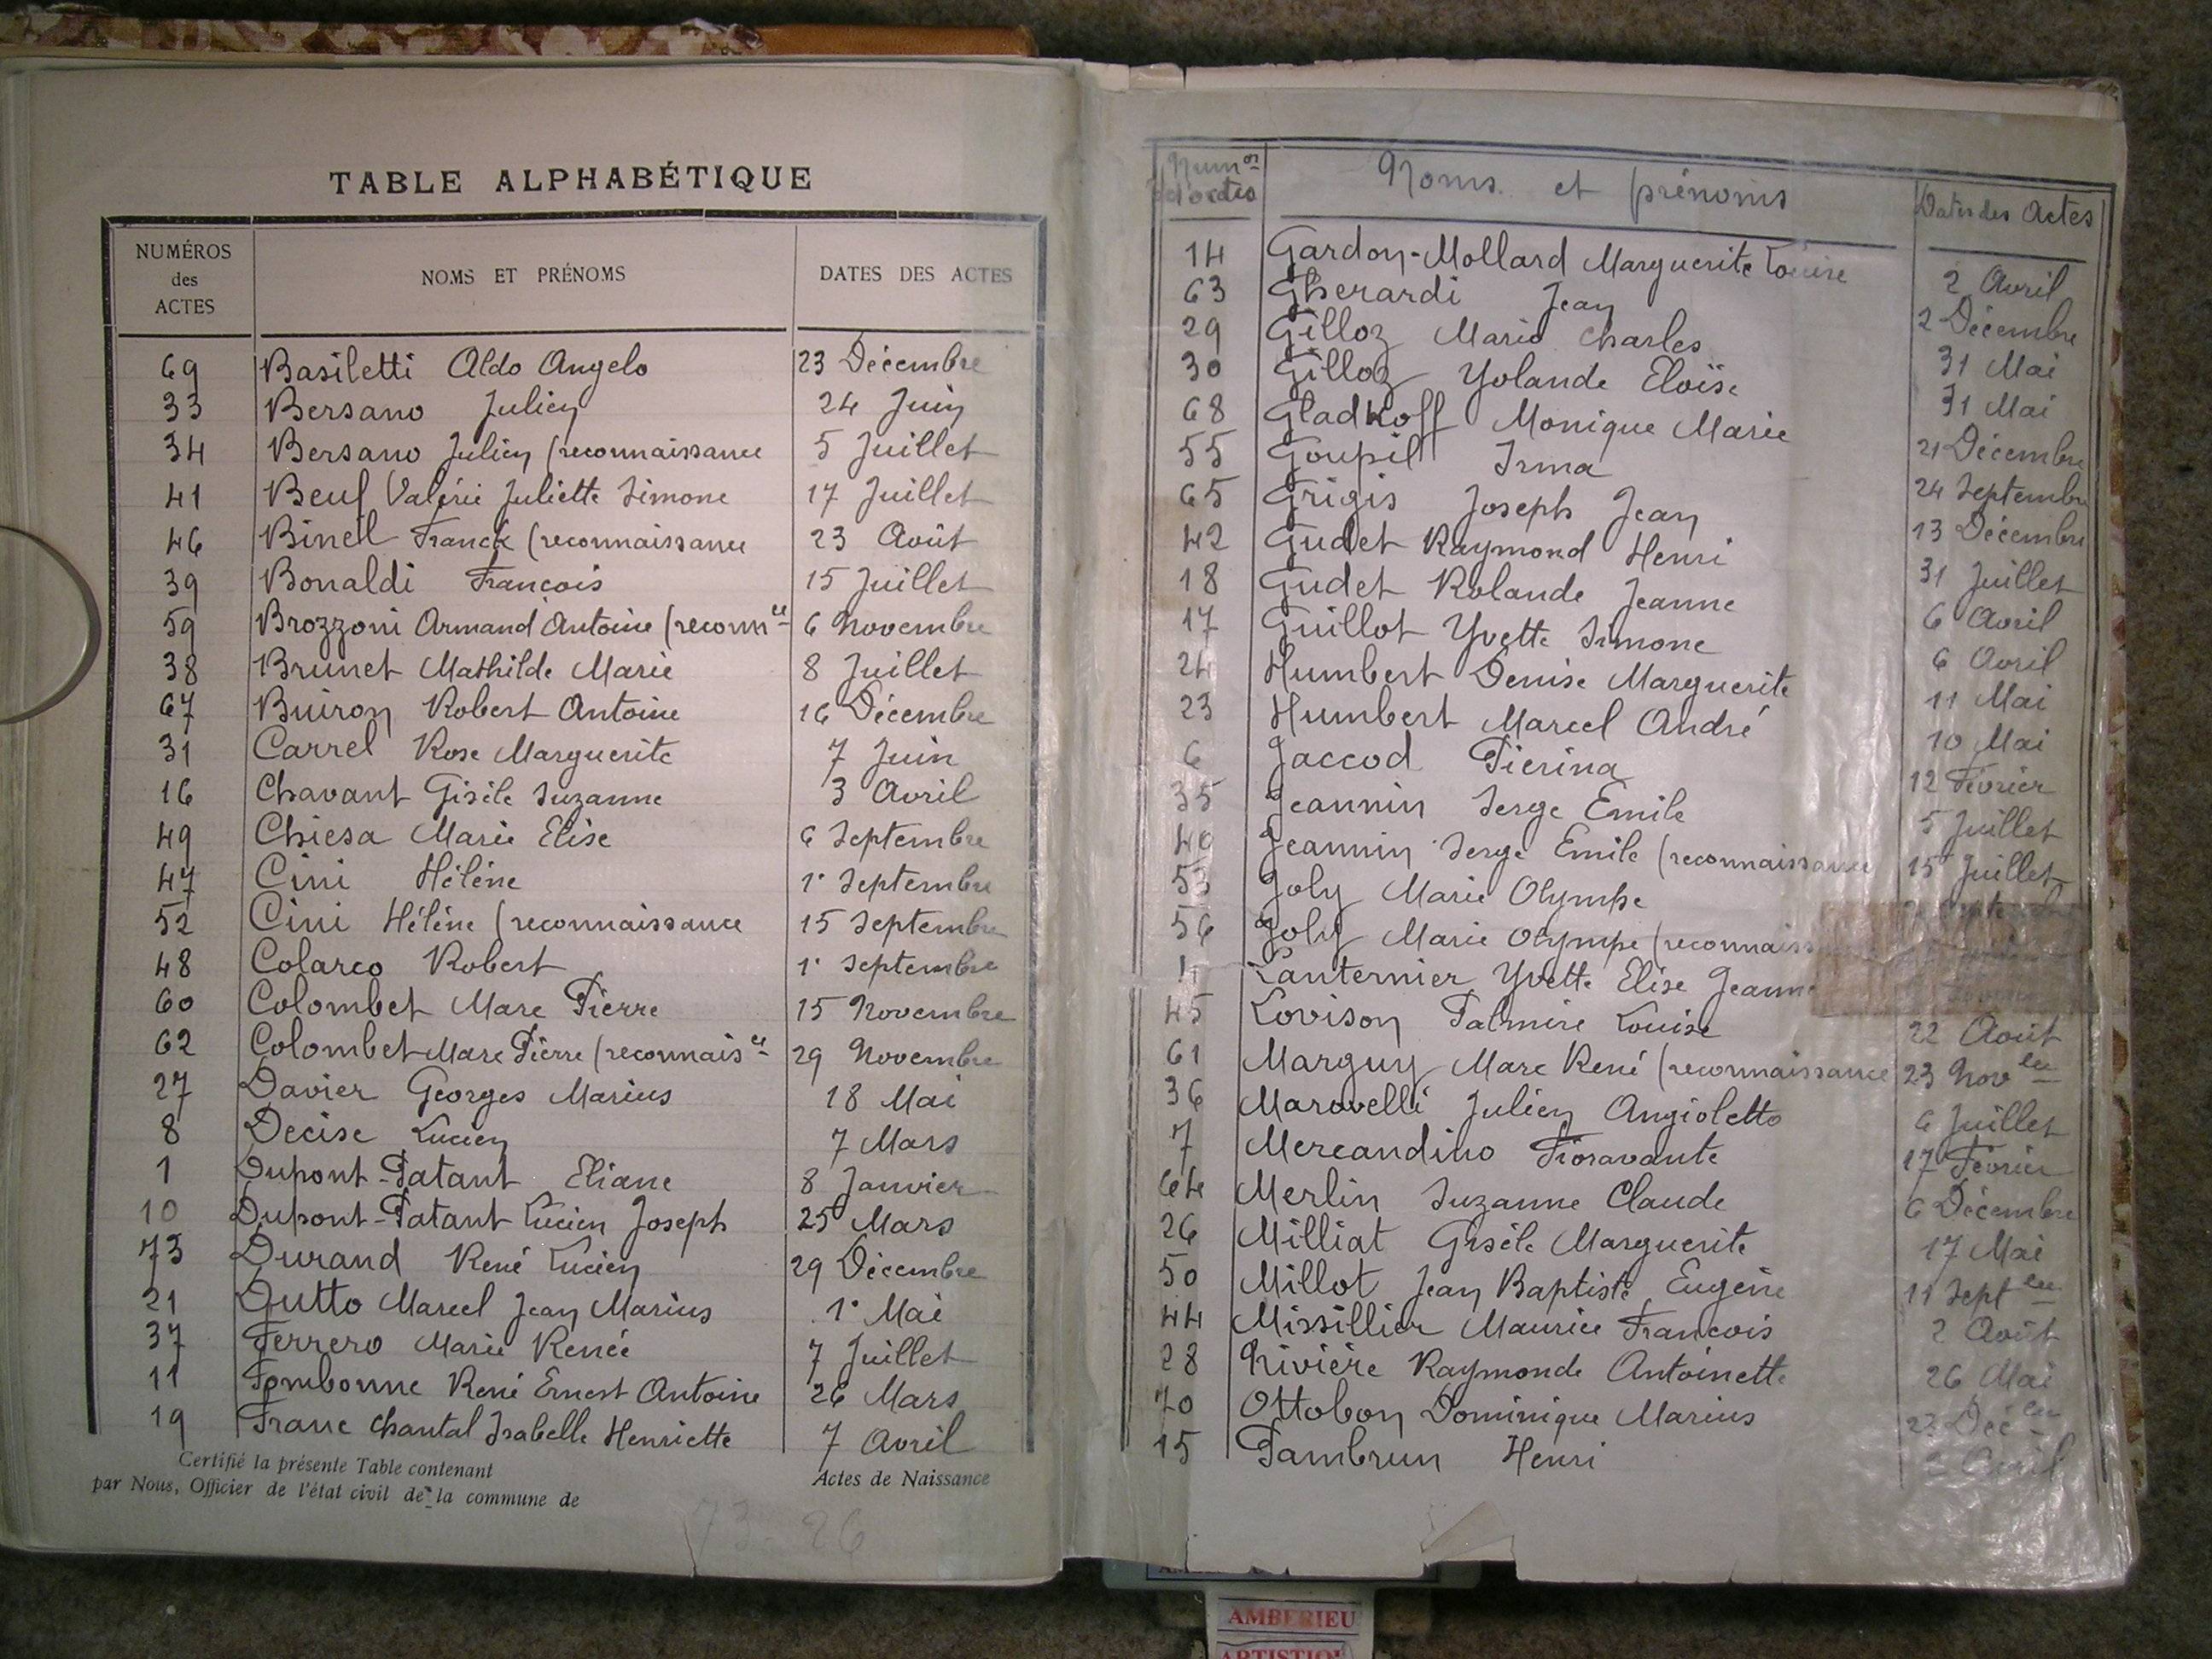 TABLE ALPHABÉTIQUE
NUMÉROS des ACTES NOMS ET PRÉNOMS DATES DES ACTES
69 Basiletti Aldo Angelo 23 Décembre
33 Bersano Julien 24 Juin
34 Bersano Julien (reconnaissance 5 Juillet
41 Beuf Valérie Juliette Simone 17 Juillet
46 Binel Franck (reconnaissance 23 Août
39 Bonaldi François 15 Juillet
59 Brozzoni Armand Antoine (reconnce 6 Novembre
38 Brunet Mathilde Marie 8 Juillet
67 Buiron Robert Antoine 16 Décembre
31 Carrel Rose Marguerite 7 Juin
16 Chavant Gisèle Suzanne 3 Avril
49 Chiesa Marie Elise 6 Septembre
47 Cini Hélène 1er Septembre
52 Cini Hélène (reconnaissance 15 Septembre
48 Colarco Robert 1er Septembre
60 Colombet Marc Pierre 15 Novembre
62 Colombet Marc Pierre (reconnaisce 29 Novembre
27 Davier Georges Marius 18 Mai
8 Decise Lucien 7 Mars
1 Dupont-Patant Eliane 8 Janvier
10 Dupont-Patant Lucien Joseph 25 Mars
73 Durand René Lucien 29 Décembre
21 Dutto Marcel Jean Marius 1er Mai
37 Ferrero Marie Renée 7 Juillet
11 Fombonne René Ernest Antoine 26 Mars
19 Franc Chantal Isabelle Henriette 7 Avril
Certifié la présente Table contenant Actes de Naissance
par Nous, Officier de l'état civil de la commune de
73 - 26
Numos d'actes Noms et prénoms Dates des Actes
14 Gardon-Mollard Marguerite Louise 2 Avril
63 Gherardi Jean 2 Décembre
29 Gilloz Marie Charles 31 Mai
30 Gilloz Yolande Eloïse 31 Mai
68 Gladkoff Monique Marie 21 Décembre
55 Goupil Irma 24 Septembre
65 Grigis Joseph Jean 13 Décembre
42 Gudet Raymond Henri 31 Juillet
18 Gudet Rolande Jeanne 6 Avril
17 Guillot Yvette Simone 6 Avril
24 Humbert Denise Marguerite 11 Mai
23 Humbert Marcel André 10 Mai
6 Jaccod Pierina 12 Février
35 Jeannin Serge Emile 5 Juillet
40 Jeannin Serge Emile (reconnaissance 15 Juillet
53 Joly Marie Olympe
56 Joly Marie Olympe (reconnaiss
4 Lanternier Yvette Elise Jeanne
45 Lovison Palmire Louise 22 Août
61 Marguy Marc René (reconnaissance 23 Novbre
36 Marovelli Julien Angioletto 6 Juillet
7 Mercandino Fioravante 17 Février
64 Merlin Suzanne Claude 6 Décembre
26 Milliat Gisèle Marguerite 17 Mai
50 Millot Jean Baptiste Eugène 11 Septbre
44 Missillier Maurice François 2 Août
28 Nivière Raymonde Antoinette 26 Mai
70 Ottobon Dominique Marius 23 Décbre
15 Pambrun Henri 2 Avril
AMBERIEU
ARTISTIQUE